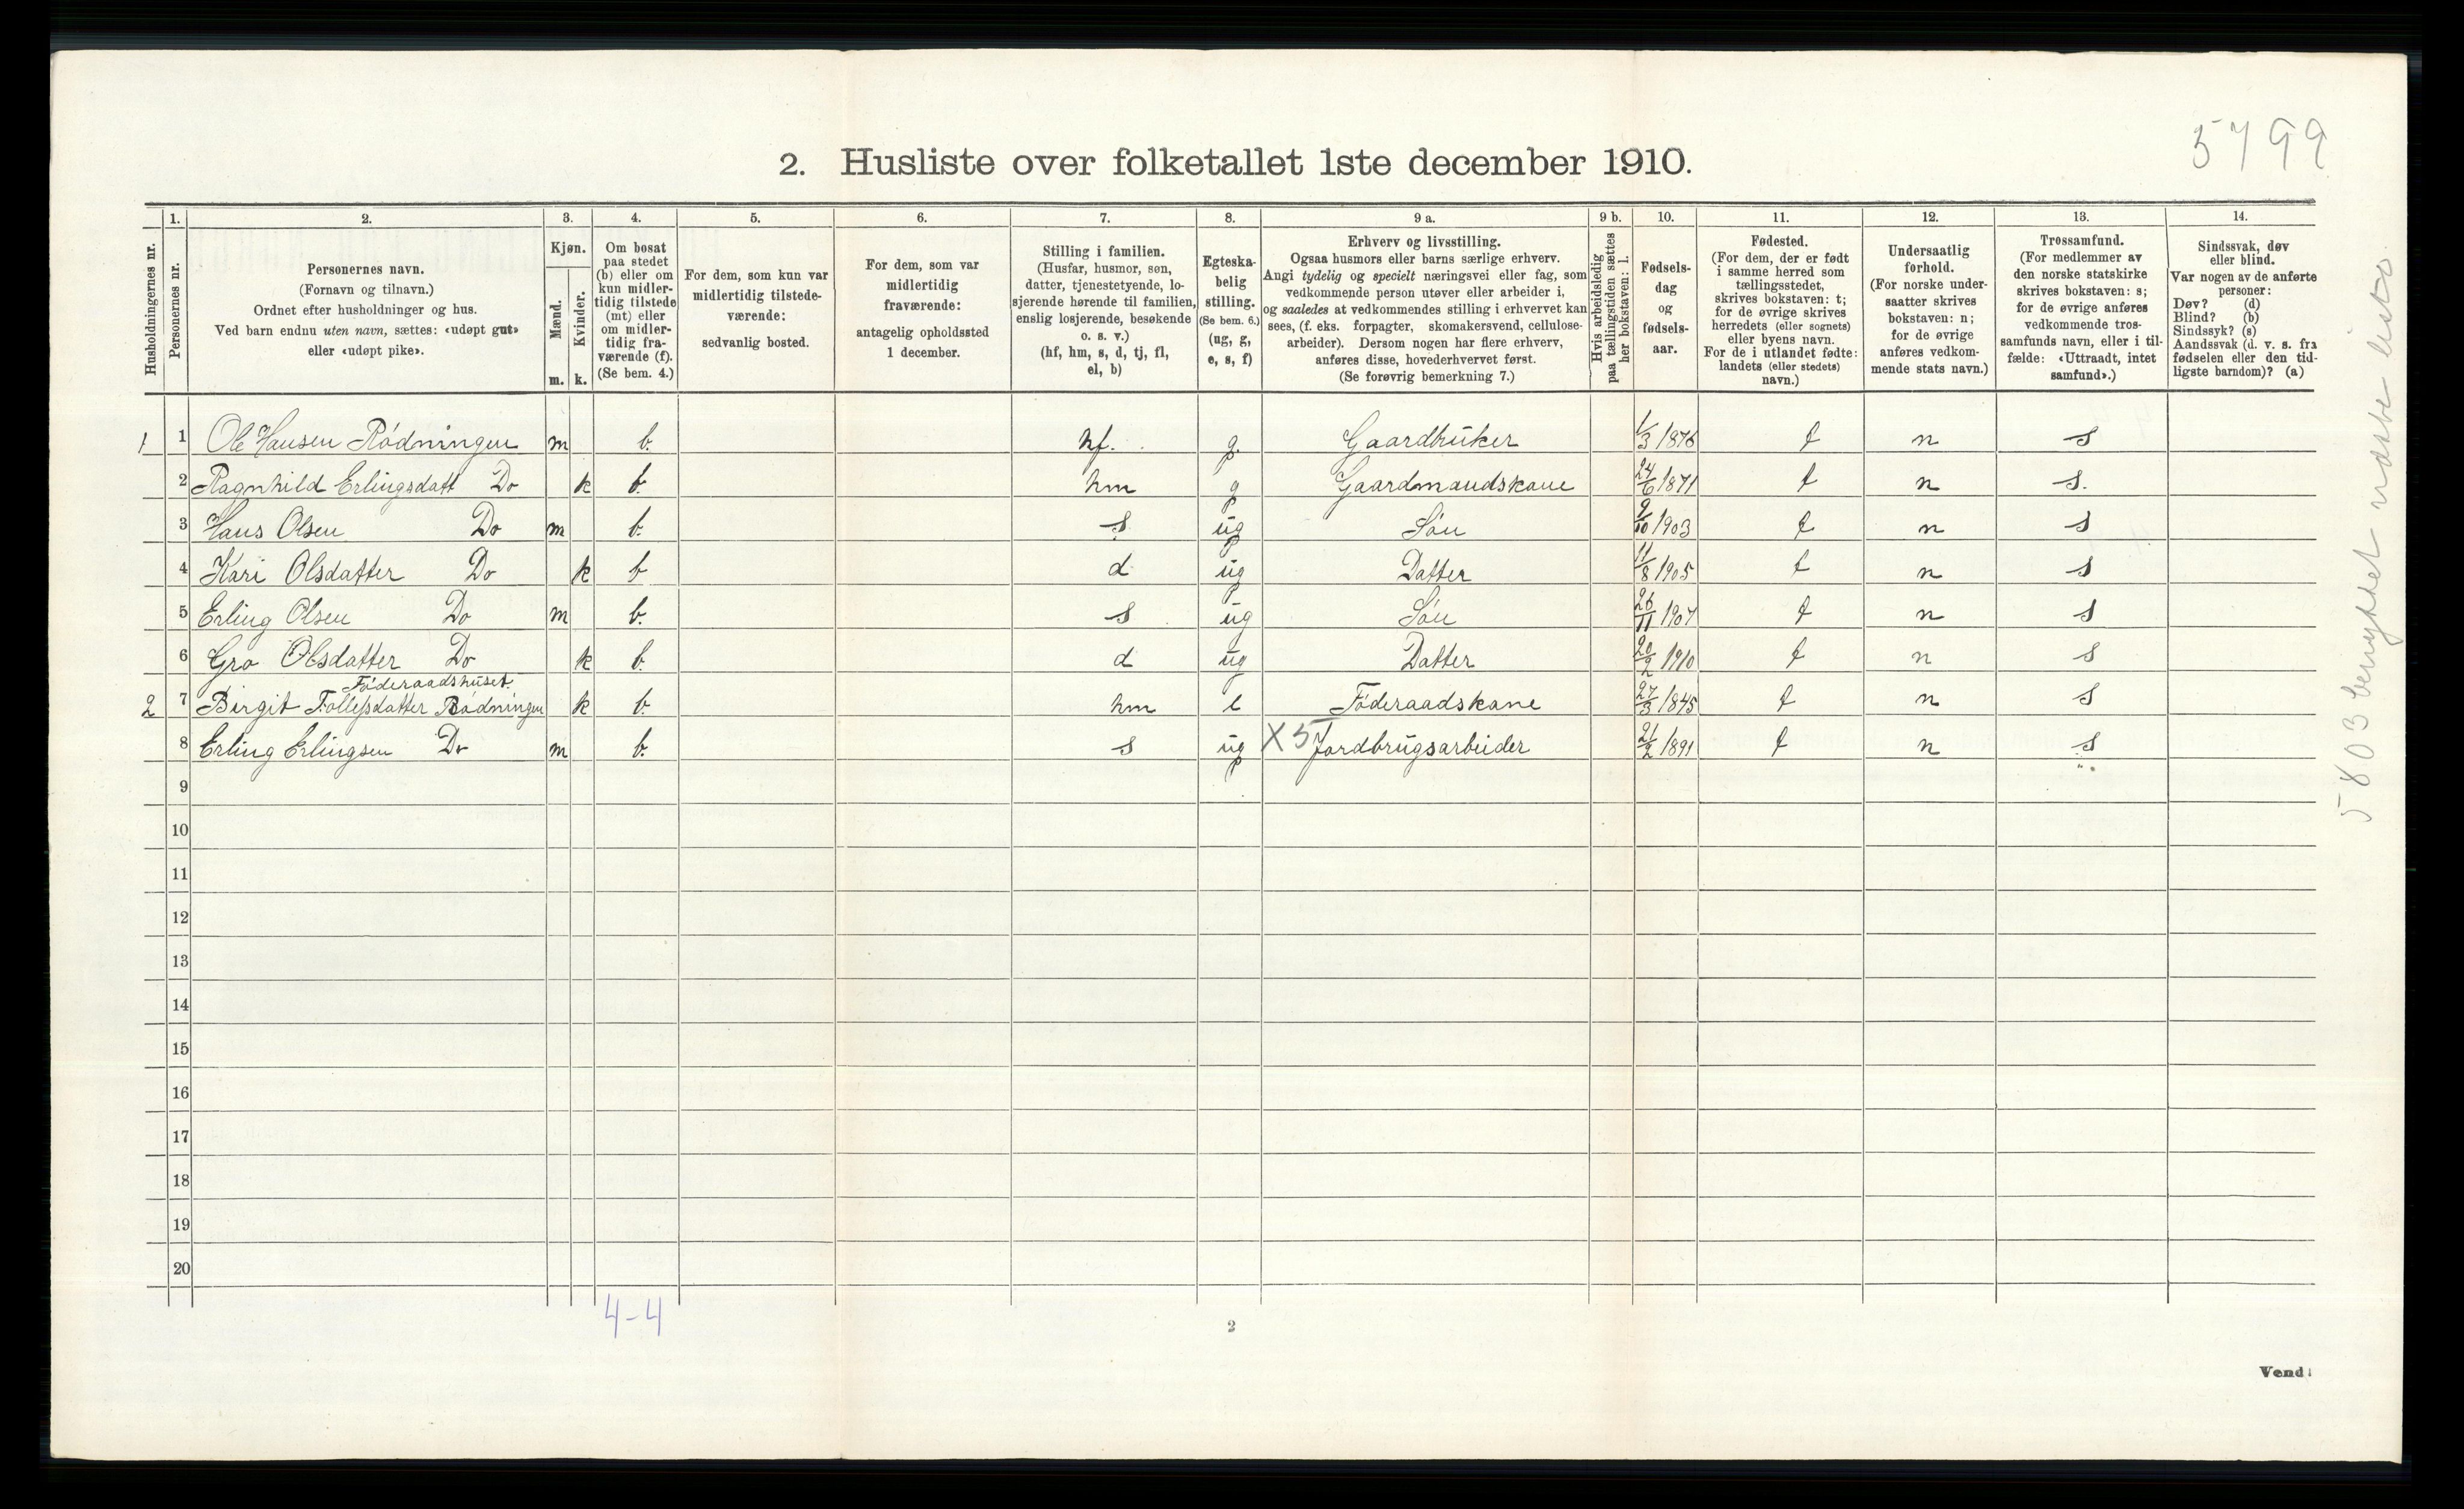 5799
2. Husliste over folketallet 1ste december 1910.
Husholdningernes nr.
1. Personernes nr.
2. Personernes navn. (Fornavn og tilnavn.) Ordnet efter husholdninger og hus. Ved barn endnu uten navn, sættes: «udøpt gut» eller «udøpt pike».
3. Kjøn. Mænd. m. Kvinder. k.
4. Om bosat paa stedet (b) eller om kun midlertidig tilstede (mt) eller om midlertidig fraværende (f). (Se bem. 4.)
5. For dem, som kun var midlertidig tilstedeværende: sedvanlig bosted.
6. For dem, som var midlertidig fraværende: antagelig opholdssted 1 december.
7. Stilling i familien. (Husfar, husmor, søn, datter, tjenestetyende, losjerende hørende til familien, enslig losjerende, besøkende o. s. v.) (hf, hm, s, d, tj, fl, el, b)
8. Egteskabelig stilling. (Se bem. 6.) (ug, g, e, s, f)
9 a. Erhverv og livsstilling. Ogsaa husmors eller barns særlige erhverv. Angi tydelig og specielt næringsvei eller fag, som vedkommende person utøver eller arbeider i, og saaledes at vedkommendes stilling i erhvervet kan sees, (f. eks. forpagter, skomakersvend, cellulosearbeider). Dersom nogen har flere erhverv, anføres disse, hovederhvervet først. (Se forøvrig bemerkning 7.)
9 b. Hvis arbeidsledig paa tællingstiden sættes her bokstaven: l.
10. Fødselsdag og fødselsaar.
11. Fødested. (For dem, der er født i samme herred som tællingsstedet, skrives bokstaven: t; for de øvrige skrives herredets (eller sognets) eller byens navn. For de i utlandet fødte: landets (eller stedets) navn.)
12. Undersaatlig forhold. (For norske undersaatter skrives bokstaven: n; for de øvrige anføres vedkommende stats navn.)
13. Trossamfund. (For medlemmer av den norske statskirke skrives bokstaven: s; for de øvrige anføres vedkommende trossamfunds navn, eller i tilfælde: «Uttraadt, intet samfund».)
14. Sindssvak, døv eller blind. Var nogen av de anførte personer: Døv? (d) Blind? (b) Sindssyk? (s) Aandssvak (d. v. s. fra fødselen eller den tidligste barndom)? (a)
1 1 Ole Hansen Rødningen m b. hf. g. Gaardbruker 1/3 1876 t n s
2 Ragnhild Erlingsdatt Do k b. hm g Gaardmandskane 24/6 1871 t n s.
3 Hans Olsen Do m b. s ug Søn 9/10 1903 t n s
4 Kari Olsdatter Do k b d ug Datter 11/8 1905 t n s
5 Erling Olsen Do m b. s ug Søn 26/11 1907 t n s
6 Gro Olsdatter Do k b. d ug Datter 20/2 1910 t n s
Føderaadshuset.
2 7 Birgit Tollefsdatter Rødningen k b. hm e Føderaadskane 27/3 1845 t n s
8 Erling Erlingsen Do m b. s ug X5 Jordbrugsarbeider 21/2 1891 t n s
9
10
11
12
13
14
15
16
17
18
19
20
4-4
2
Vend!
5803 benyttet næste liste